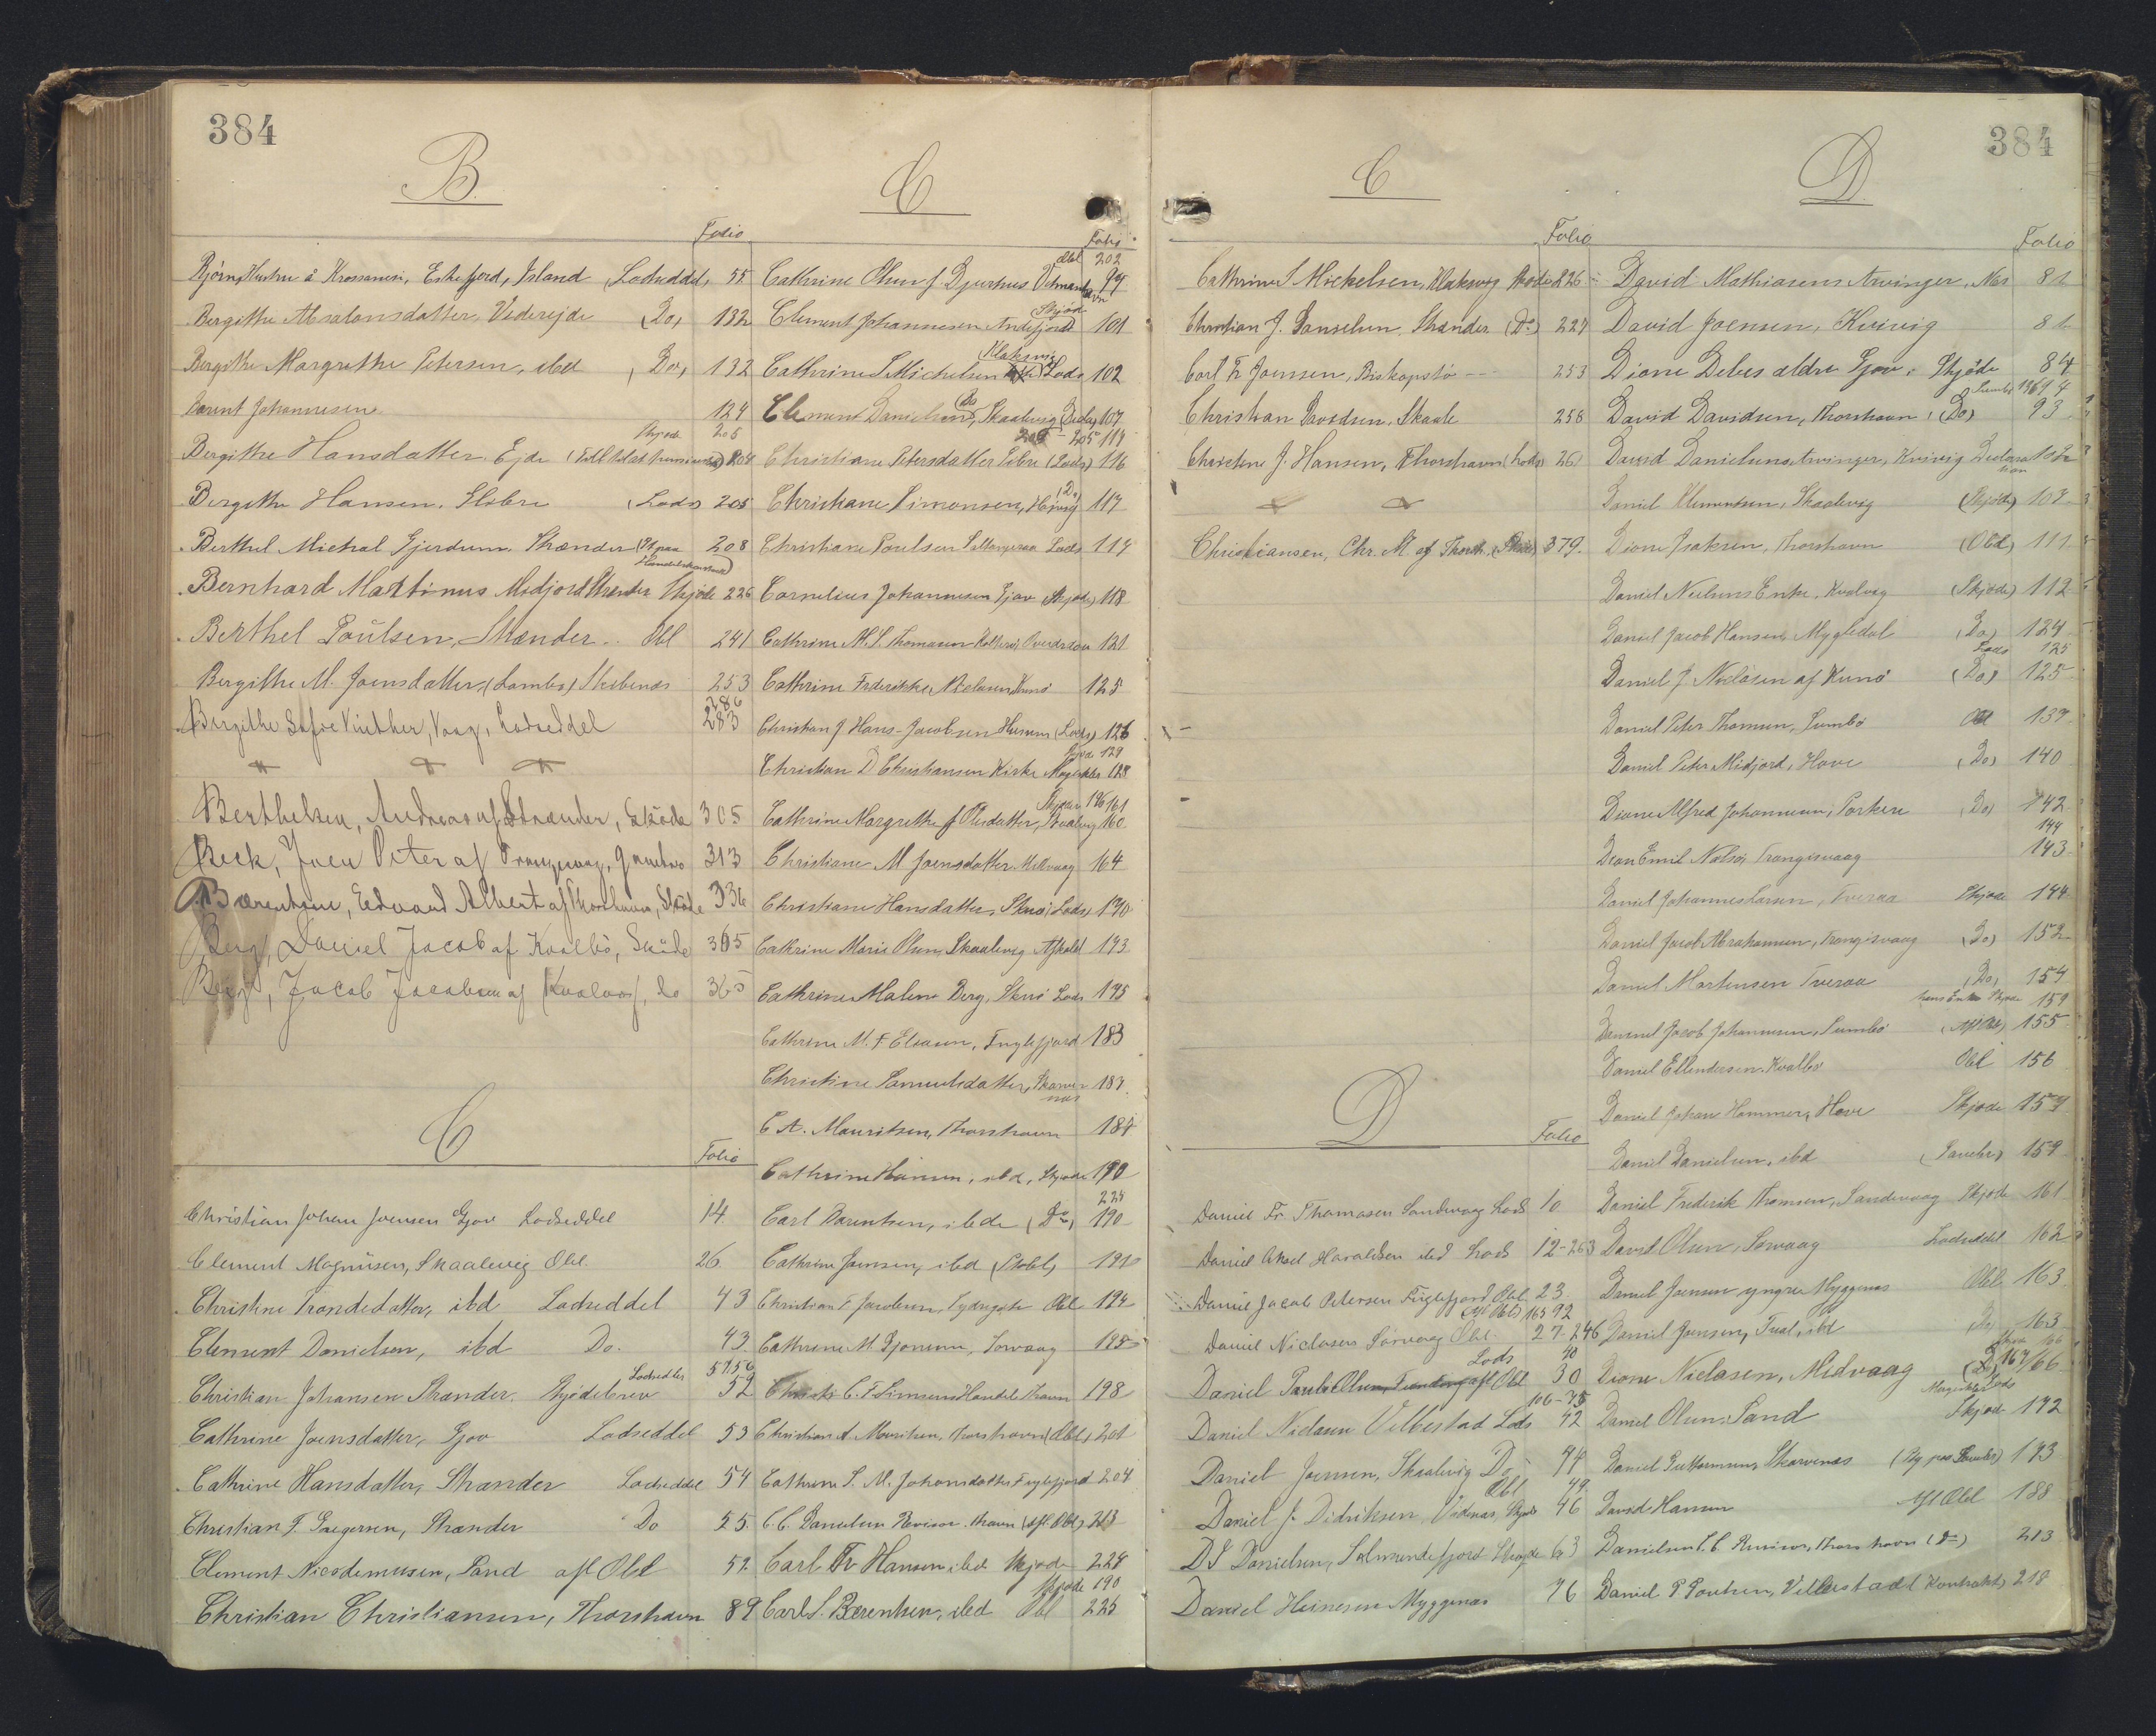 384
B.
Folio
Björng Hustru å Krossanesi, Eskefjord, Island (Lodseddel, 55
Bergithe Absalonsdatter, Viderejde (Do) 132
Bergithe Margrethe Petersen, ibd (Do) 132
Barent Johannesen 124
Skjøde 205
Bergithe Hansdatter Ejde 204
Bergithe Hansen, Elsbre (Lods) 205
Berthel Michal Gjerdum, Strænder 208
Bernhard Martinus Midjord Strænder Skjøde 226
Berthel Poulsen, Strænder Obl 241
Bergithe M. Joensdatter, (Lambo) Skebenæs 253
286
Birgithe Sofie Vinther, Vaag, Lodseddel 283
Berthelsen, Andreas af Strænder, Skøde 305
Beck, Joen Peter af 313
Bærentsen, Edvard Albert af Thorshavn, Skøde 336
Berg, Daniel Jacob af Kvalbø, Skøde 365
Berg, Jacob Jacobsen af Kvalvog, do 365
C
Folio
Christian Johan Joensen Gjov Lodseddel 14
Clement Magnusen, Skaalevig Obl. 26.
Christine Trondedatter, ibd Lodseddel 43
Clement Danielsen, ibd Do. 43.
Lodsedler 57.56
Christian Johansen Strænder. Skjødebrev 52
Cathrine Joensdatter, Gjov Lodseddel 53
Cathrine Hansdatter, Strænder Lodseddel 54
Christian F. Joegersen, Strænder Do 55.
Clement Nicodemusen, Sand afl Obl 57.
Christian Christiansen, Thorshavn 89
C
Folio
Obl 202
Cathrine Olsen f. Djurhus Vestmanhavn 99
Skjøde
Clement Johannesen Andefjord 101
Klaksvig
Cathrine S Michelsen Lods 102
Do
Clement Danielsen, Skaalevig 107
205 114
Christiane Petersdatter Elbre (Lods) 116
(Do)
Christiane Simonsen, Hosvig 117
Christiane Poulsen Selletreraa Lods 117
Cornelius Johannesen Gjov (Skjøde) 118
Cathrine M. S. Thomasen 121
Cathrine Frderikke Niclasen, Kunø 125
Christian J Hans-Jacobsen Husum (Lods) 126
Skjøde 129
Christian D Christiansen Kirke 128
Skjøder 176 161
Cathrine Margrethe f Olesdatter, Kvalvig 160
Christiane M Joensdatter Midvaag 164
Christiane Hansdatter, Skuø, Lods, 170
Cathrine Marie Olsen, Skaalevig Afkald 173
Cathrine Malene Berg, Skuø Lods 175
Cathrine M. F Eliasen, Fuglefjord 183
Christine Samuelsdatter, Skarvenæs 187.
C A. Mauritsen, Thorshavn 187
Cathrine Hansen, ibd, Skjøde 190
224
Carl Barentsen, ibde (Do) 190
Cathrine Jensen, ibd (Skbl) 191
Christian F Jacobsen, Sydregøte Obl 194
Cathrine M. Gjonsen, Sorvaag 195
C. F. Simonsen Handel Havn 198
Christian A Mouritsen, Thorshavn (Obl) 201
Cathrine S. M. Johansdatter Fuglefjord 204
C. C. Danielsen Revisor. Thavn (Afl. Obl) 213
Carl Fr Hansen, ibd Skjøde 224
Skjøde 190
Carl S. Bærentsen, ibd Obl 225
384
C
Folio
Cathrine S Mickelsen, Klaksvig Skøde 226
Christian J. Danielsen, Strænder (Do) 227
Carl Fr Joensen, Biskopstø 253
Christian Davidsen. Skaale 258
Christine J. Hansen, Thorshavn (Lods) 261
Christiansen, Chr. M. af Thorsh. (Skøde) 379.
D
Folio
Daniel Fr. Thomasen Sandevaag Lods 10
Daniel Aksel Haraldsen ibd Lods 12-263
Daniel Jacob Petersen Fuglefjord Obl 23
(Afl Obl) 165 92
Daniel Niclasen Sørvaag Obl. 27-246
Lods 40
Daniel Pauli Olsen afl Obl 30
106-75
Daniel Niclasen Velbestad Lods 42
Daniel Joensen, Skaalevig Do 44
Obl 49
Daniel J. Didriksen, Videnæs, Skjøde 46
D J Danielsen, Selmundefjord Skøyde 63
Daniel Heinesen Myggenæs 76
D.
Folio
David Mathiasens Arvinger, Næs 81
David Joensen, Kvivig 81
Dione Debes ældre Gjov, Skjøde 84
Sumbø 176 94
David Davidsen, Thorshavn, (Do) 93
David Danielsens Arvinger, Kvivig Declaration 102
Daniel Klementsen, Skaalevig (Skjøde) 107
Dione Isaksen, Thorshavn (Obl) 111
Daniel Nielsens Enke, Kvalvig (Skjøde) 112
Daniel Jacob Hansen, Mygledal (Do) 124
Lods 125
Daniel J. Niclasen af Kunø (Do) 125
Daniel Peter Thomsen, Sumbø Obl 139
Daniel Peter Midjord, Hove (Do) 140
Dione Alfred Johannesen, Porkere (Do) 142
144
Dion Emil Nolsø, Trangisvaag 143
Daniel Johannes Larsen, Tveraa Skjøde 144
Daniel Jacob Abrahamsen, Trangisvaag (Do) 152
Daniel Mortensen Tveraa (Do) 154
hans Enke Skjøde 159
Daniel Jacob Johannesen, Sumbø (Afl Obl) 155
Daniel Ellendersen, Kvalbø Obl 156
Daniel Johan Hammer, Hove Skjøde 157
Daniel Danielsen, ibd 159
Daniel Frederik Thomsen, Sandevaag Skjøde 161
David Olsen, Sørvaag Lodseddel 162
Daniel Joensen yngre Myggenæs Obl 163
Daniel Joensen, Fual, ibd Do 163
Dione Niclasen, Midvaag (Do) 167/66
Daniel Olsen, Sand Skjøde 172
Daniel Guttormsen, Skarvenæs 173
David Hansen Afl Obl 188
Danielsen C. C. Revisor, Thorshavn (Do) 213
Daniel P Poulsen, Velbestadt Kontrakt, 218